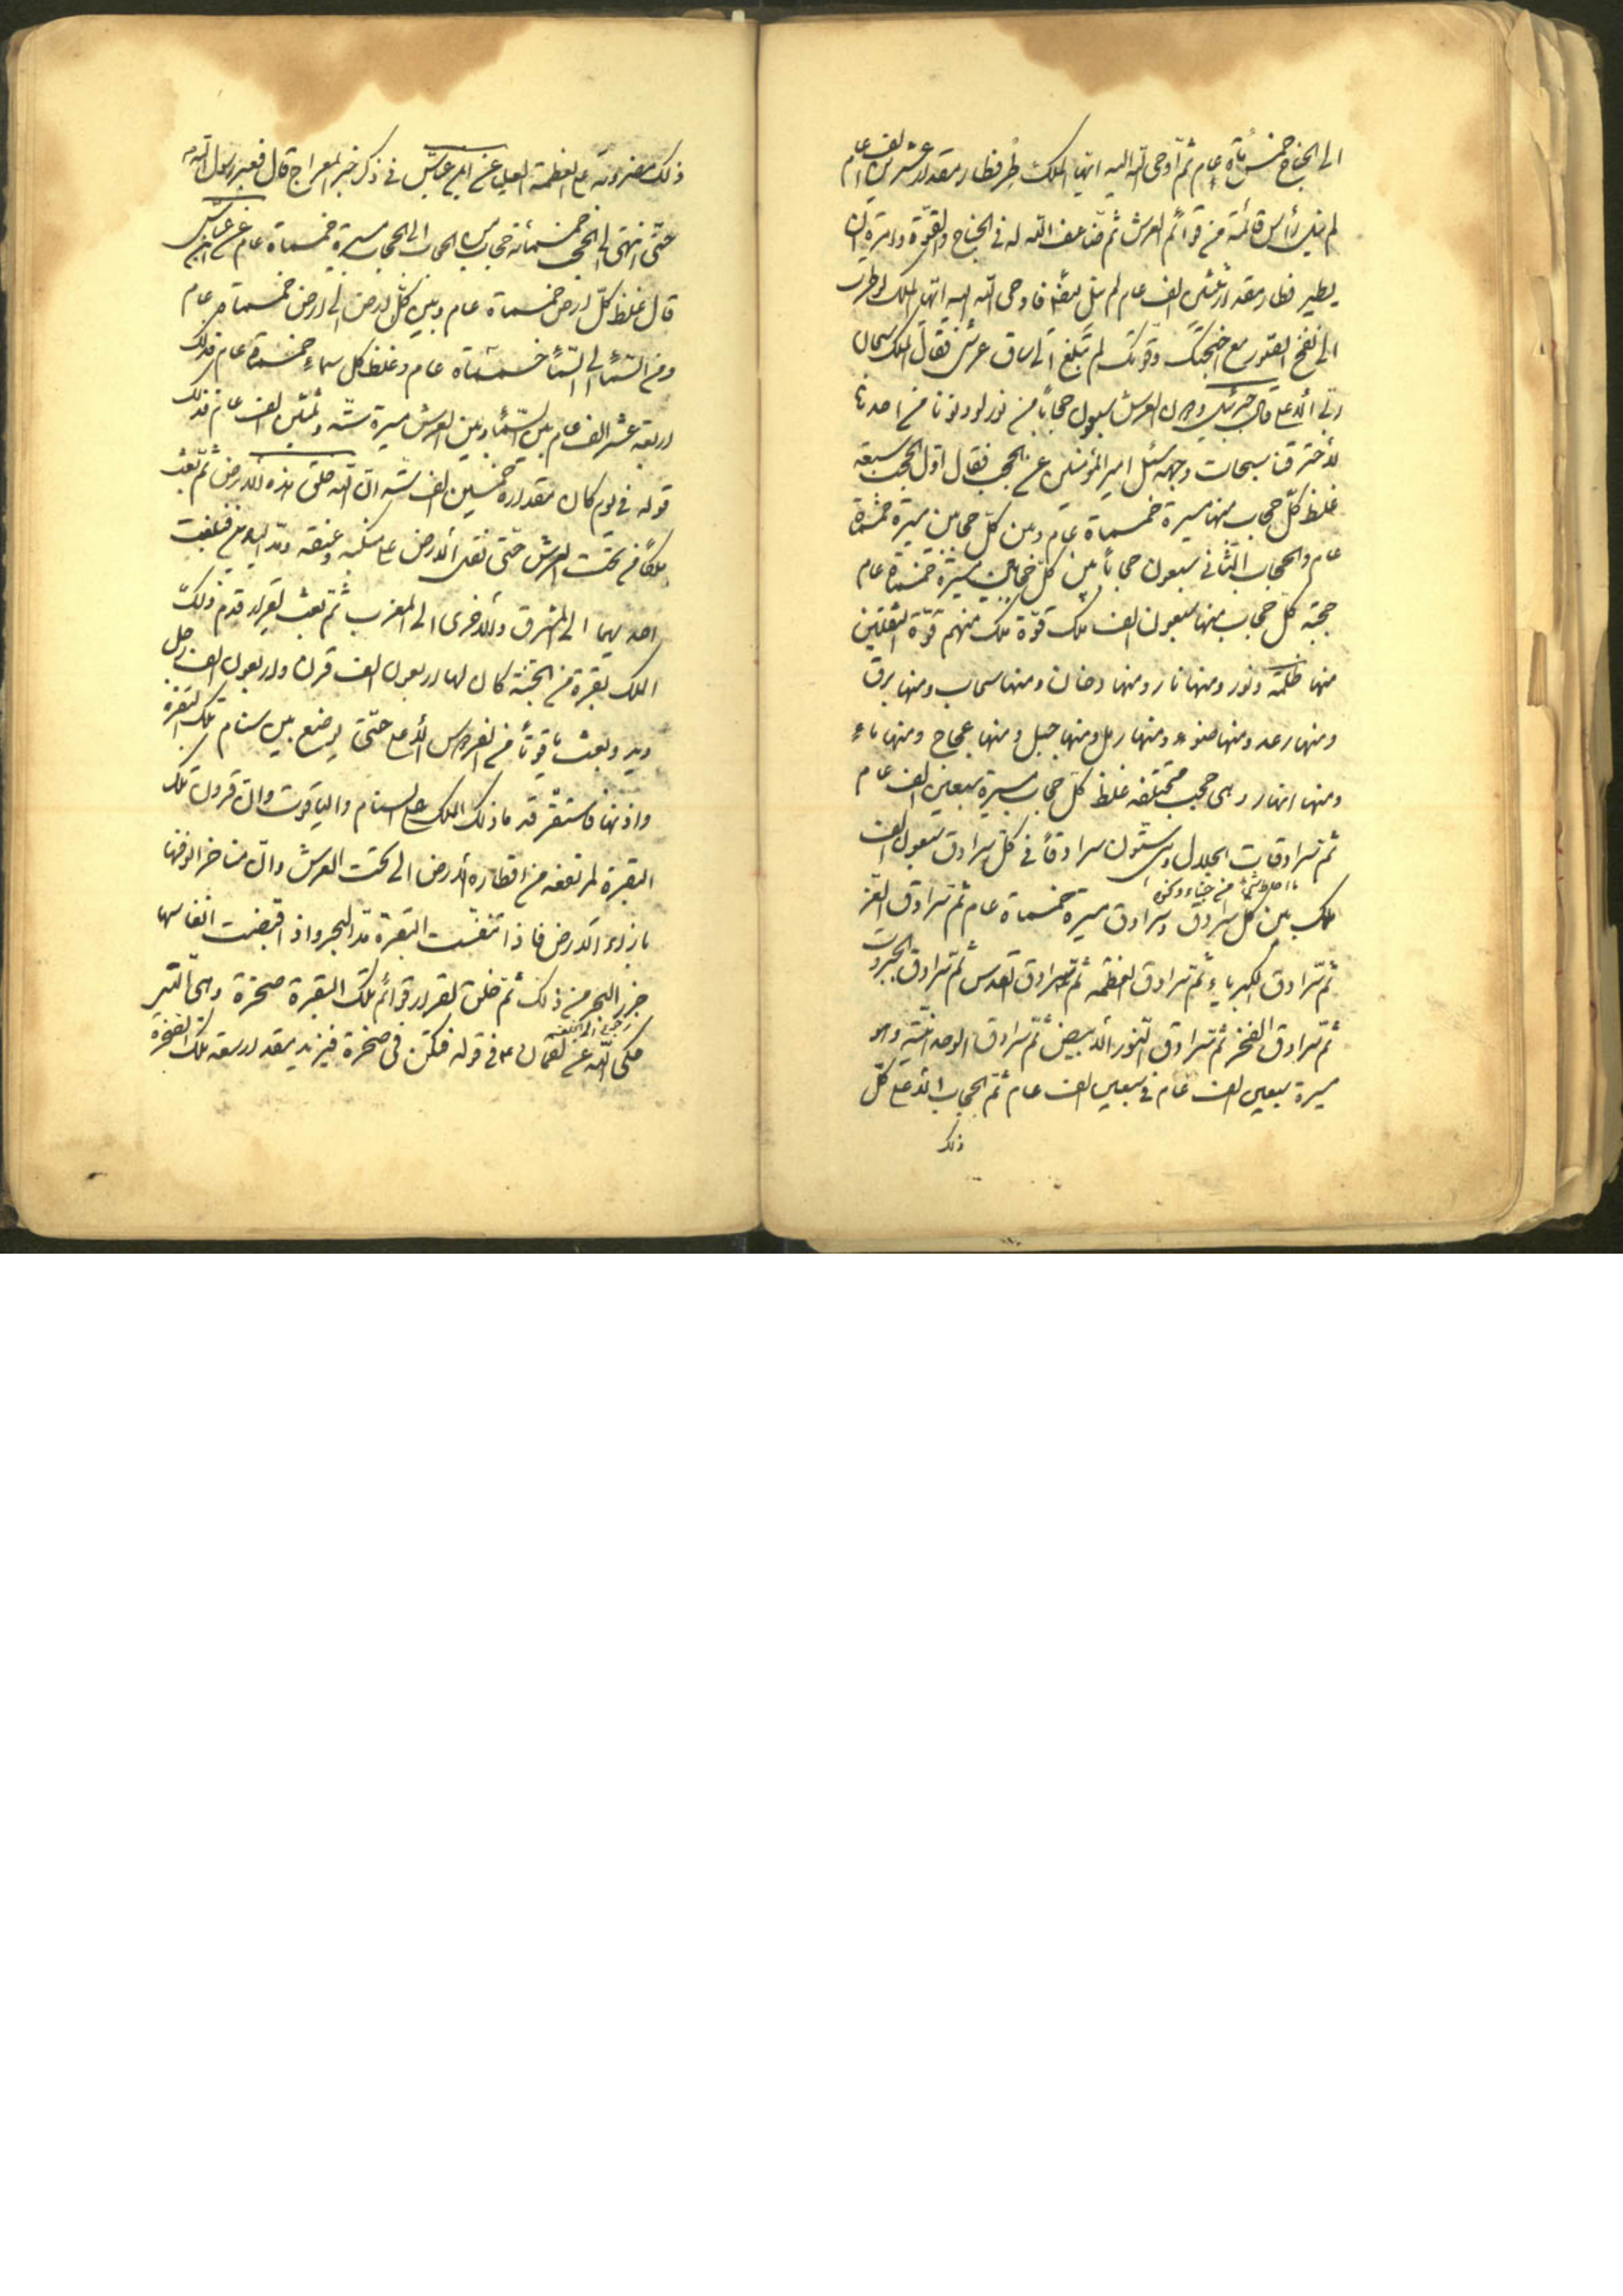 الى الجناح خمسمأة عام ثم أوحى الله اليه ايها الملك طر فطار مقدار عشرين الف عام
لم ينل رأس قائمة من قوائم العرش ثم ضاعف الله له في الجناح والقوة وامره ان
يطير فطار مقدار ثلثين الف عام لم ينل ايضا فاوحى الله اليه ايها الملك لو طرت
الى نفخ الصور مع اجنحتك وقوتك لم تبلغ الى ساق عرشى فقال الملك سبحان
ربى الأعلى قال جبرئيل دون العرش سبعون حجاباً من نور لو دنونا من احدها
لأحترقنا سبحات وجهه سئل امير المؤمنين عن الحجب فقال اول الحجب سبعة
غلظ كل حجاب منها مسيرة خمسمأة عام وبين كل حجابين مسيرة خمسمأة
عام والحجاب الثانى سبعون حجاباً بين كل حجابين مسيرة خمسمأة عام
حجبة كل حجاب منها سبعون الف ملك قوة كل ملك منهم قوة الثقلين
منها ظلمة ونور ومنها نار ومنها دخان ومنها سحاب ومنها برق
ومنها رعد ومنها ضوء ومنها رمل ومنها جبل ومنها عجاج ومنها ماء
ومنها انهار وهى حجب مختلفة غلظ كل حجاب مسيرة سبعين الف عام
ثم سرادقات الجلال وهى ستون سرادقاً في كل سرادق سبعون الف
ملك بين كل سرادق وسرادق مسيرة خمسمأة عام ثم سرادق العز
ثم سرادق الكبرياء ثم سرادق العظمة ثم سرادق القدس ثم سرادق الجبروت
ثم سرادق الفخر ثم سرادق النور الأبيض ثم سرادق الوحدانية وهو
مسيرة سبعين الف عام في سبعين الف عام ثم الحجاب الأعلى كل
ذلك
ذلك على العظمة العلى عن ابن عباس في ذكر خبر المعراج قال فعبر رسول الله
حتى انتهى الى الحجب خمسمأئة حجاب من الحجاب الى الحجاب مسيرة خمسمأة عام عن ابن عباس
قال غلظ كل ارض خمسمأة عام وبين كل ارض الى ارض خمسمأة عام
ومن السمأ الى السمأ خمسمأة عام وغلظ كل سماء خمسمأة عام فذلك
اربعة عشر الف عام بين السمأ وبين العرش مسيرة ستة وثلثين الف عام فذلك
قوله في يوم كان مقداره خمسين الف سنة ان الله خلق هذه الأرض ثم بعث
ملكاً من تحت العرش حتى نقل الأرض على منكبه وعنقه ومد اليدين فبلغت
احديهما الى المشرق والأخرى الى المغرب ثم بعث لقرار قدم ذلك
الملك بقرة من الجنة كان لها اربعون الف قرن واربعون الف رجل
ويد وبعث ياقوتاً من الفردوس الأعلى حتى يوضع بين سنام تلك البقرة
واذنها فاستقر قدما ذلك الملك على السنام والياقوت وان قرون تلك
البقرة لمرتفعة من اقطار الأرض الى تحت العرش وان مناخر انوفها
بازاء الأرض فاذا تنفست البقرة مد البحر واذا قبضت انفاسها
جزر البحر من ذلك ثم خلق لقرار قوائم تلك البقرة صخرة وهى التى
حكى الله عن لقمان في قوله فتكن في صخرة فيزيد مقدار سعة تلك الصخرة